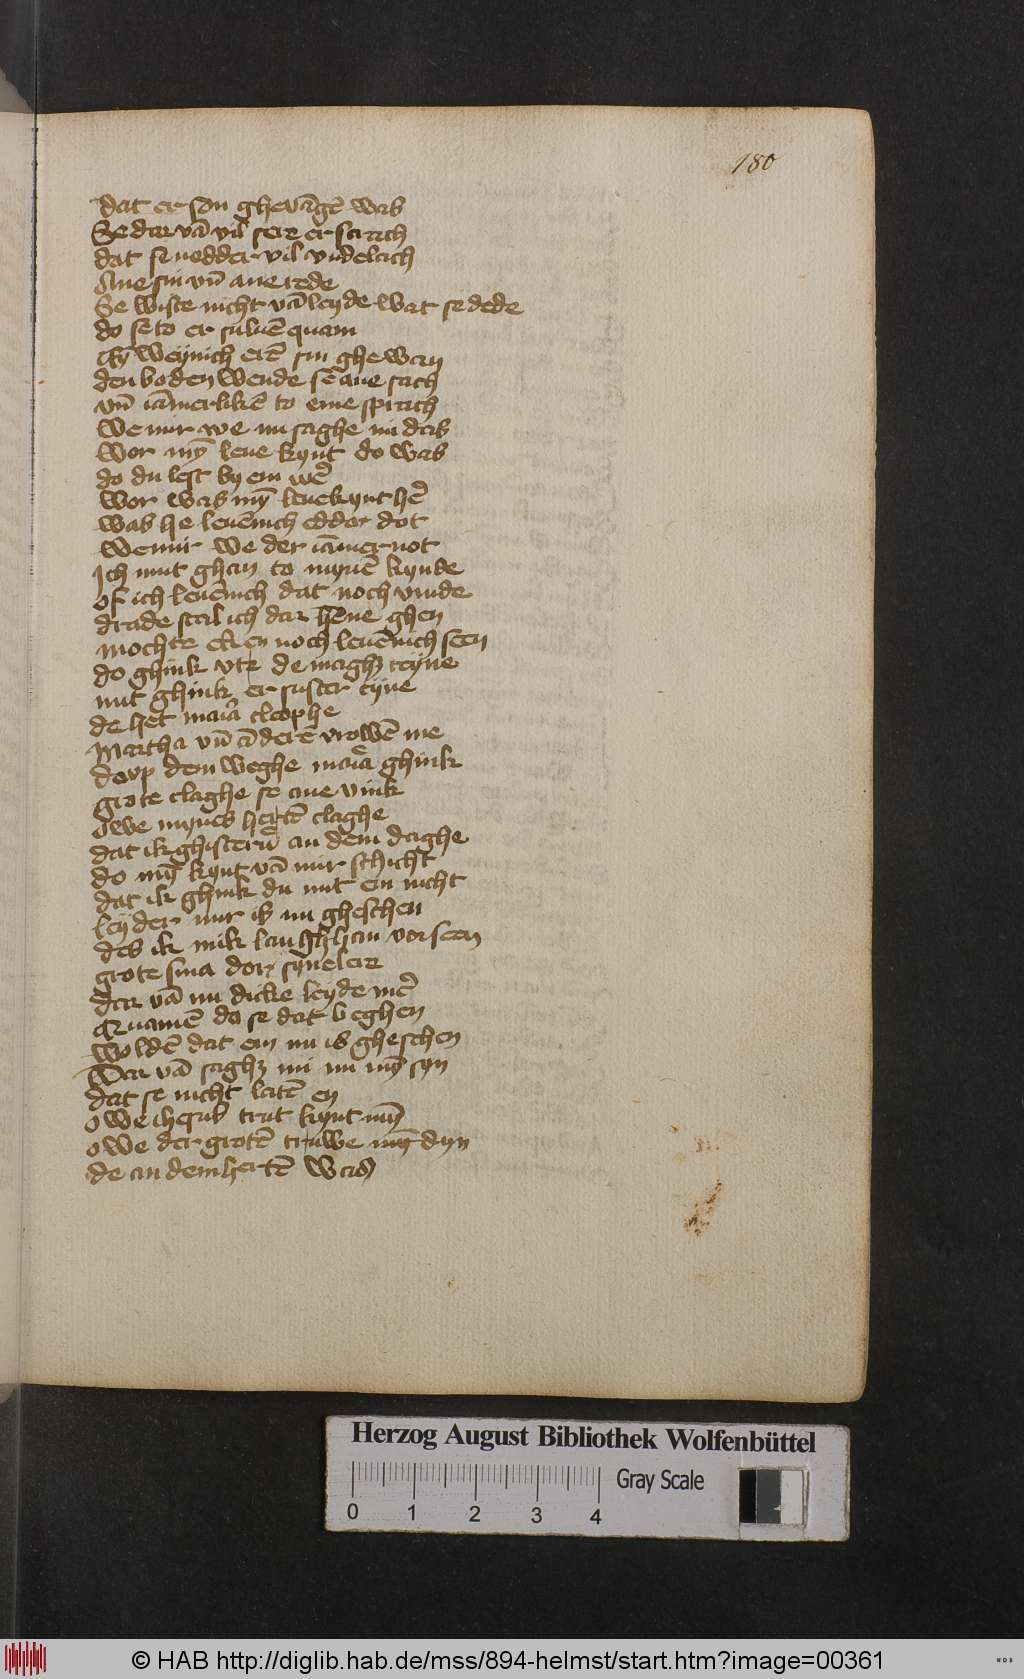 180
dat er son ghevāgē was
Se dar vā vil sere er scrach
dat se nedder vil vnde lach
Ane sin vn̄ ane rede
Se wiste nicht vā leyde wat se dede
do se to er suluē quam
weynich erē sin ghewan
den boden wende se ane sach
vn̄ iāmerlikē to eme sprach
we mir we nu saghe mi das
wor mȳ leue kynt do was
do du lest by em wē
wor was mȳ leue kynt hē
was he leuēnich edder dot
we mir we der iāmer not
Ich mut ghan to mynē kynde
of ich leuēnich dat noch vinde
drade scal ich dar hēne ghen
mochte ek en noch leuēnich seen
do ghink vte de magh reyne
mit ghink er suster eyne
de het maīa cleophe
Martha vn̄ āderē vrowē me
dorp dem weghe maīa ghink
grote claghe se ane vink
Owe mynes hertē claghe
dat ik ghisterū an dem daghe
do mȳ kynt vā mir schicht
dat ik ghink du mit em nicht
leyder mir is nu gheschen
des ik mik lang han vorseen
grote sma dor syne lere
dar vā nu dicke leyde mē
Quamē do se dat beghen
woldē dat em nu is gheschen
War vā sagh mi nu mȳ syn
dat se nicht latē en
owe ihesus trut kynt mȳ
owe der grotē truwe mȳ dyn
de an dem hertē was
Herzog August Bibliothek Wolfenbüttel
Gray Scale
0 1 2 3 4
© HAB http://diglib.hab.de/mss/894-helmst/start.htm?image=00361